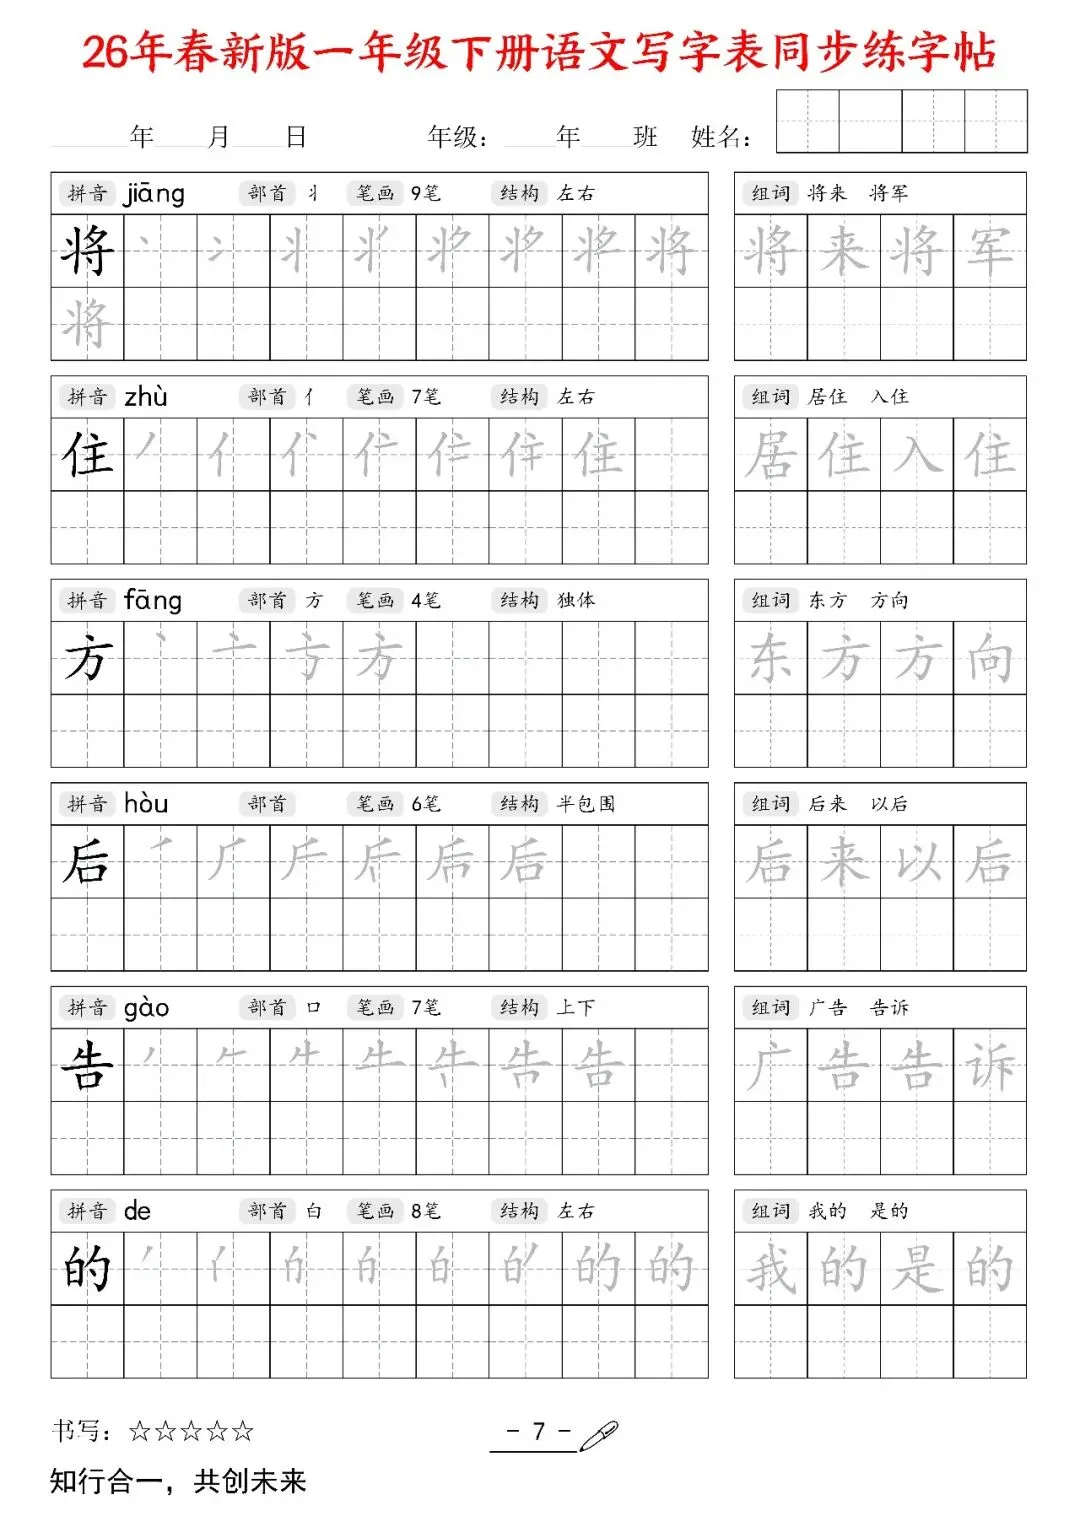 26年春新版一年级下册语文写字表同步练字帖
年 月 日 年级： 年 班 姓名：
拼音 jiāng 部首 丬 笔画 9笔 结构 左右 组词 将来 将军
将 将 将来将军
将
拼音 zhù 部首 亻 笔画 7笔 结构 左右 组词 居住 入住
住 丿 亻 住 居住入住
拼音 fāng 部首 方 笔画 4笔 结构 独体 组词 东方 方向
方 丶 亠 方 东方方向
拼音 hòu 部首 笔画 6笔 结构 半包围 组词 后来 以后
后 后 后来以后
拼音 gào 部首 口 笔画 7笔 结构 上下 组词 广告 告诉
告 告 广告告诉
拼音 de 部首 白 笔画 8笔 结构 左右 组词 我的 是的
的 的 的 我的是的
书写：☆☆☆☆☆ - 7 -
知行合一，共创未来